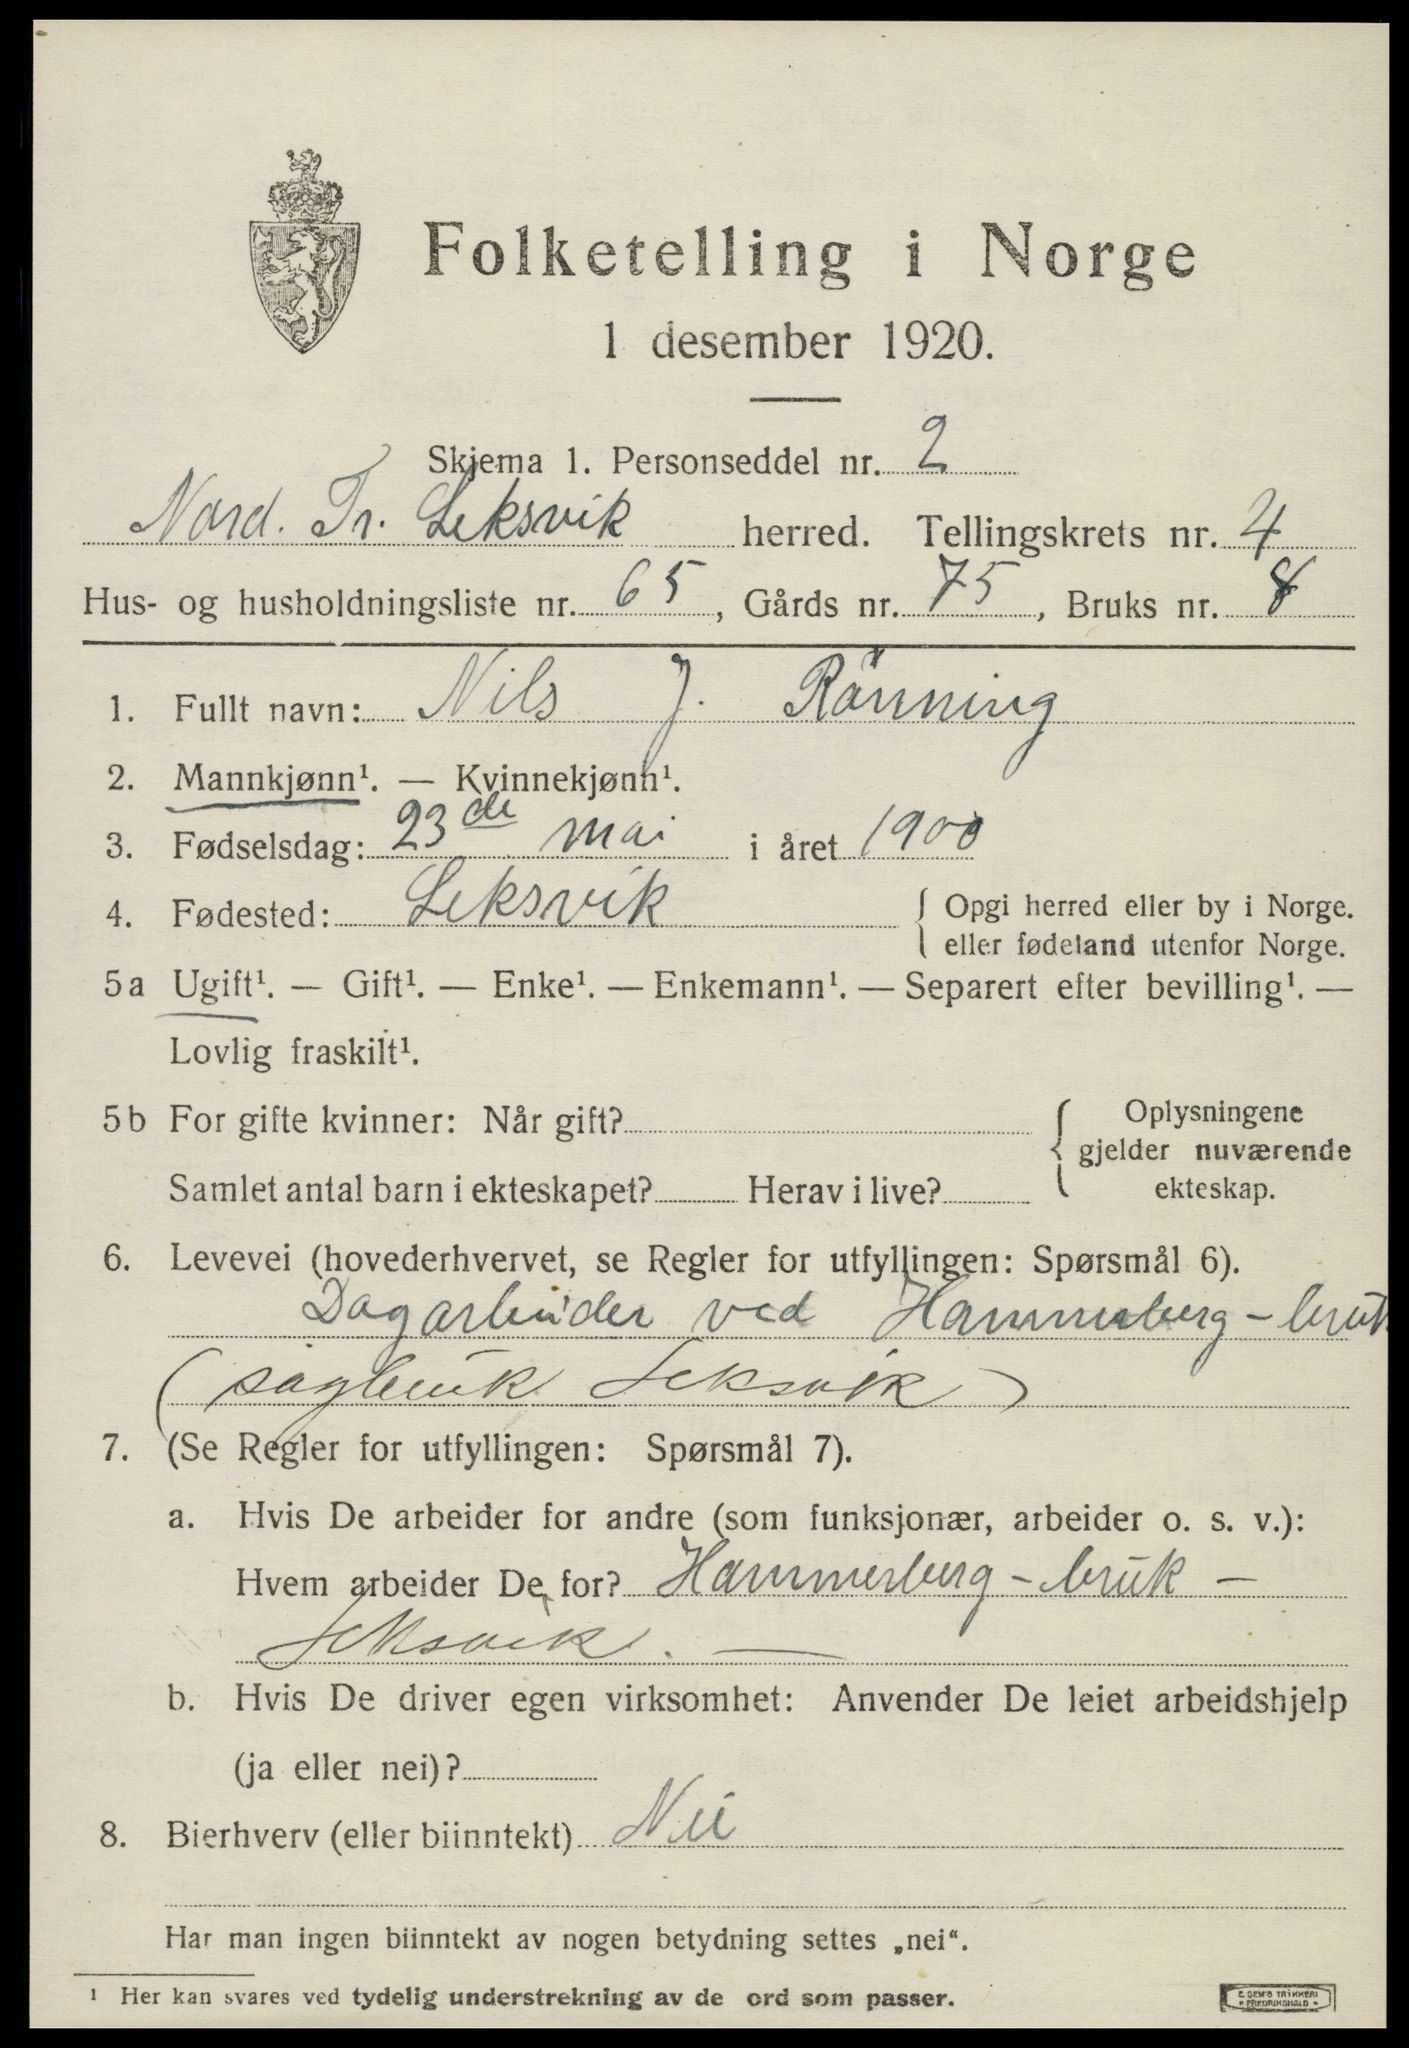 Folketelling i Norge
1 desember 1920.
Skjema 1. Personseddel nr. 2
Nord. Tr. Leksvik herred. Tellingskrets nr. 4
Hus- og husholdningsliste nr. 65, Gårds nr. 75, Bruks nr. 8
1. Fullt navn: Nils J. Rönning
2. Mannkjønn¹. — Kvinnekjønn¹.
3. Fødselsdag: 23de mai i året 1900
4. Fødested: Leksvik { Opgi herred eller by i Norge.
eller fødeland utenfor Norge.
5a Ugift¹. — Gift¹. — Enke¹. — Enkemann¹. — Separert efter bevilling¹. —
Lovlig fraskilt¹.
5b For gifte kvinner: Når gift? { Oplysningene
gjelder nuværende
Samlet antal barn i ekteskapet? Herav i live? ekteskap.
6. Levevei (hovederhvervet, se Regler for utfyllingen: Spørsmål 6).
Dagarbeider ved Hammerberg - bruk
(sagbruk Leksvik)
7. (Se Regler for utfyllingen: Spørsmål 7).
a. Hvis De arbeider for andre (som funksjonær, arbeider o. s. v.):
Hvem arbeider De for? Hammerberg - bruk -
Leksvik. —
b. Hvis De driver egen virksomhet: Anvender De leiet arbeidshjelp
(ja eller nei)?
8. Bierhverv (eller biinntekt) Nei
Har man ingen biinntekt av nogen betydning settes „nei“.
¹ Her kan svares ved tydelig understrekning av de ord som passer.
E. SEM'S TRYKKERI
* FREDRIKSHALD *